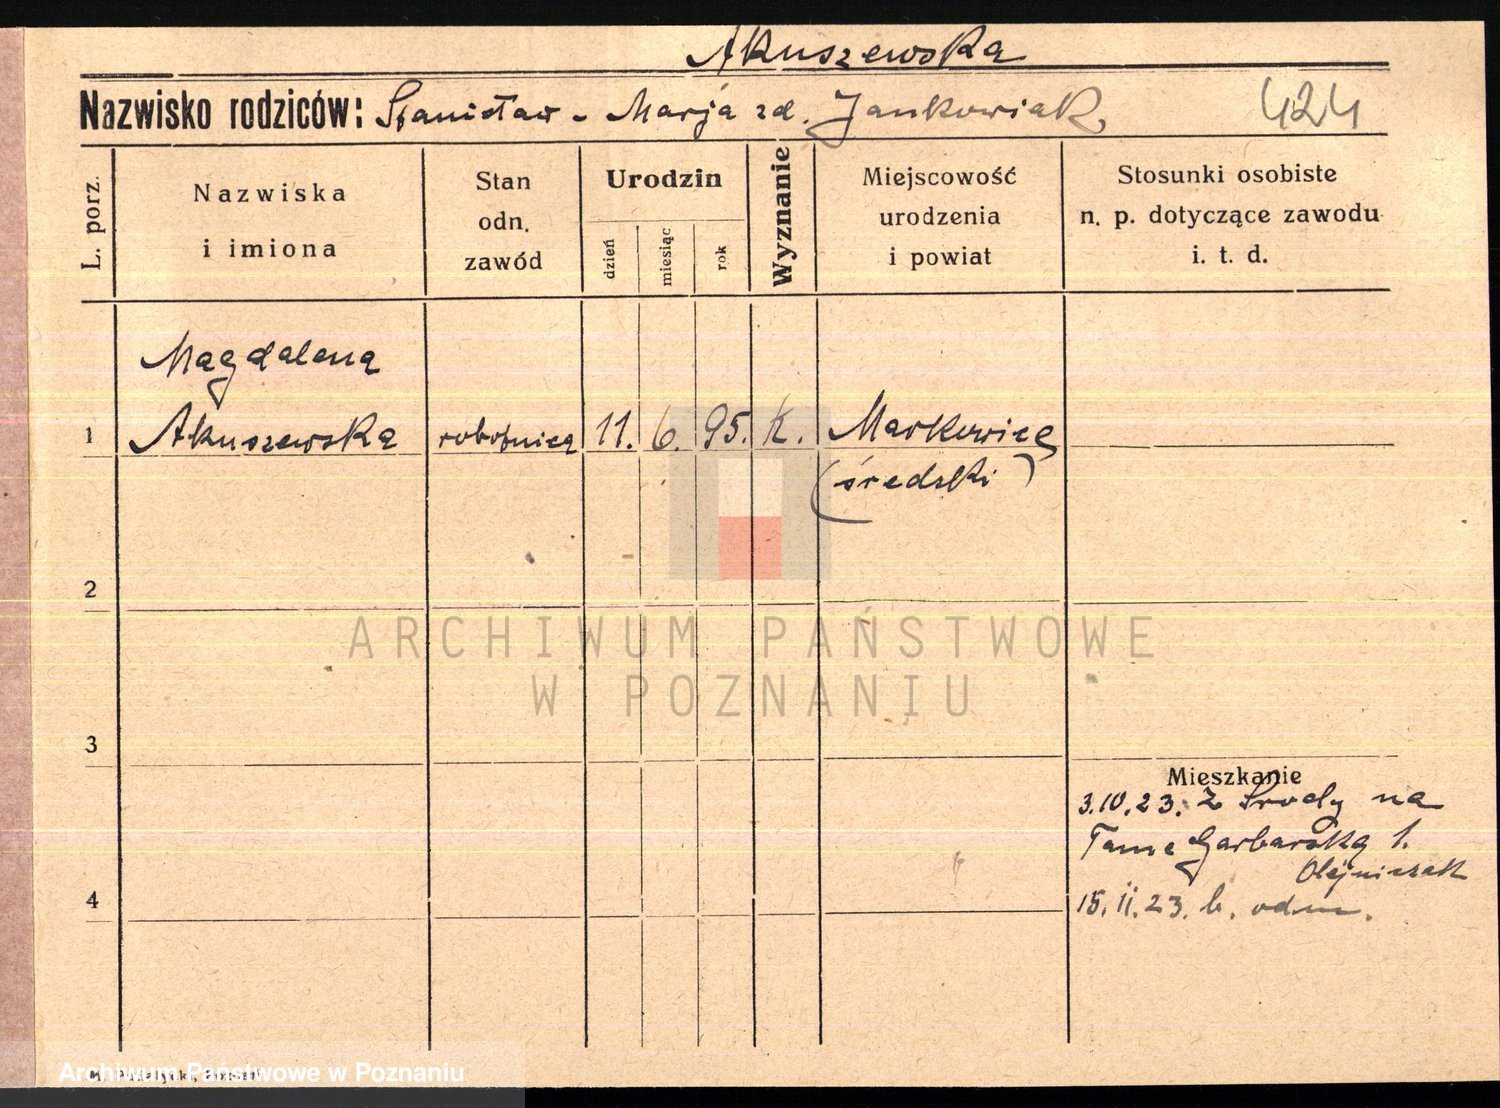 Akuszewska
Nazwisko rodziców: Stanisław - Marja zd. Jankowiak 424
L. porz.
Nazwiska
i imiona
Stan
odn.
zawód
Urodzin
dzień
miesiąc
rok
Wyznanie
Miejscowość
urodzenia
i powiat
Stosunki osobiste
n. p. dotyczące zawodu
i. t. d.
Magdalena
1 Akuszewska robotnica 11. 6. 95. k. Markowice
(średzki)
2
ARCHIWUM PAŃSTWOWE
W POZNANIU
3
Mieszkanie
3.10.23. z Środy na
Tama Garbarska 1.
Olejniczak
4 15.11.23. b. odm.
Archiwum Państwowe w Poznaniu